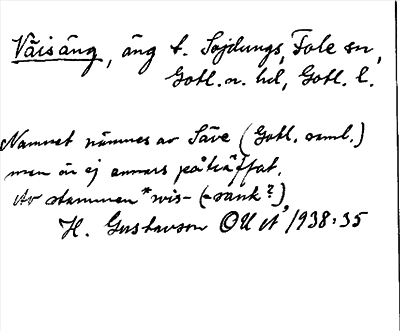 Väisäng, äng t. Sojdungs, Fole sn,
Gotl. n. hd, Gotl. l.
Namnet nämnes av Säve (Gotl. saml.)
men är ej annars påträffat.
Av stammen *wis- (= sank?),
H. Gustavson OUÅ 1938:35